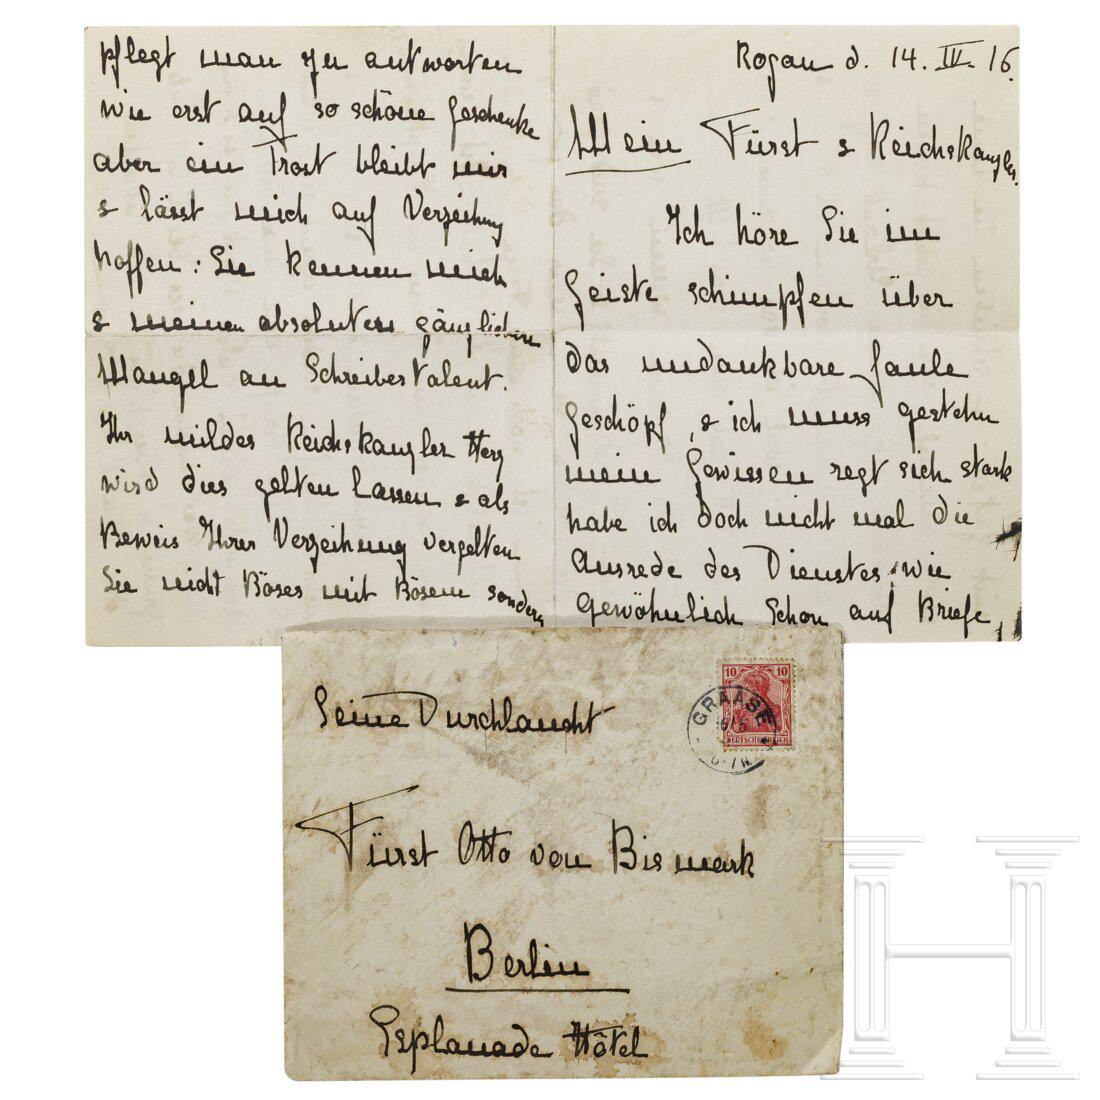 Rogau d. 14. IV. 16.
Mein Fürst & Reichskanzler.
Ich höre Sie im
Geiste schimpfen über
das undankbare faule
Geschöpf, & ich muss gestehn
mein Gewissen regt sich stark
habe ich doch nicht mal die
Ausrede des Dienstes, wie
gewöhnlich schon auf Briefe
pflegt man zu antworten
wie erst auf so schöne Geschenke
aber ein Trost bleibt mir
& lässt mich auf Verzeihung
hoffen: Sie kennen mich
& meinen absoluten gänzlichen
Mangel an Schreibertalent.
Ihr mildes Reichskanzler Herz
wird dies gelten lassen & als
Beweis Ihrer Verzeihung vergelten
Sie nicht Böses mit Bösem sondern
Seine Durchlaucht
Fürst Otto von Bismark
Berlin
Esplanade Hôtel
10 10
DEUTSCHES REICH
GRAASE
H